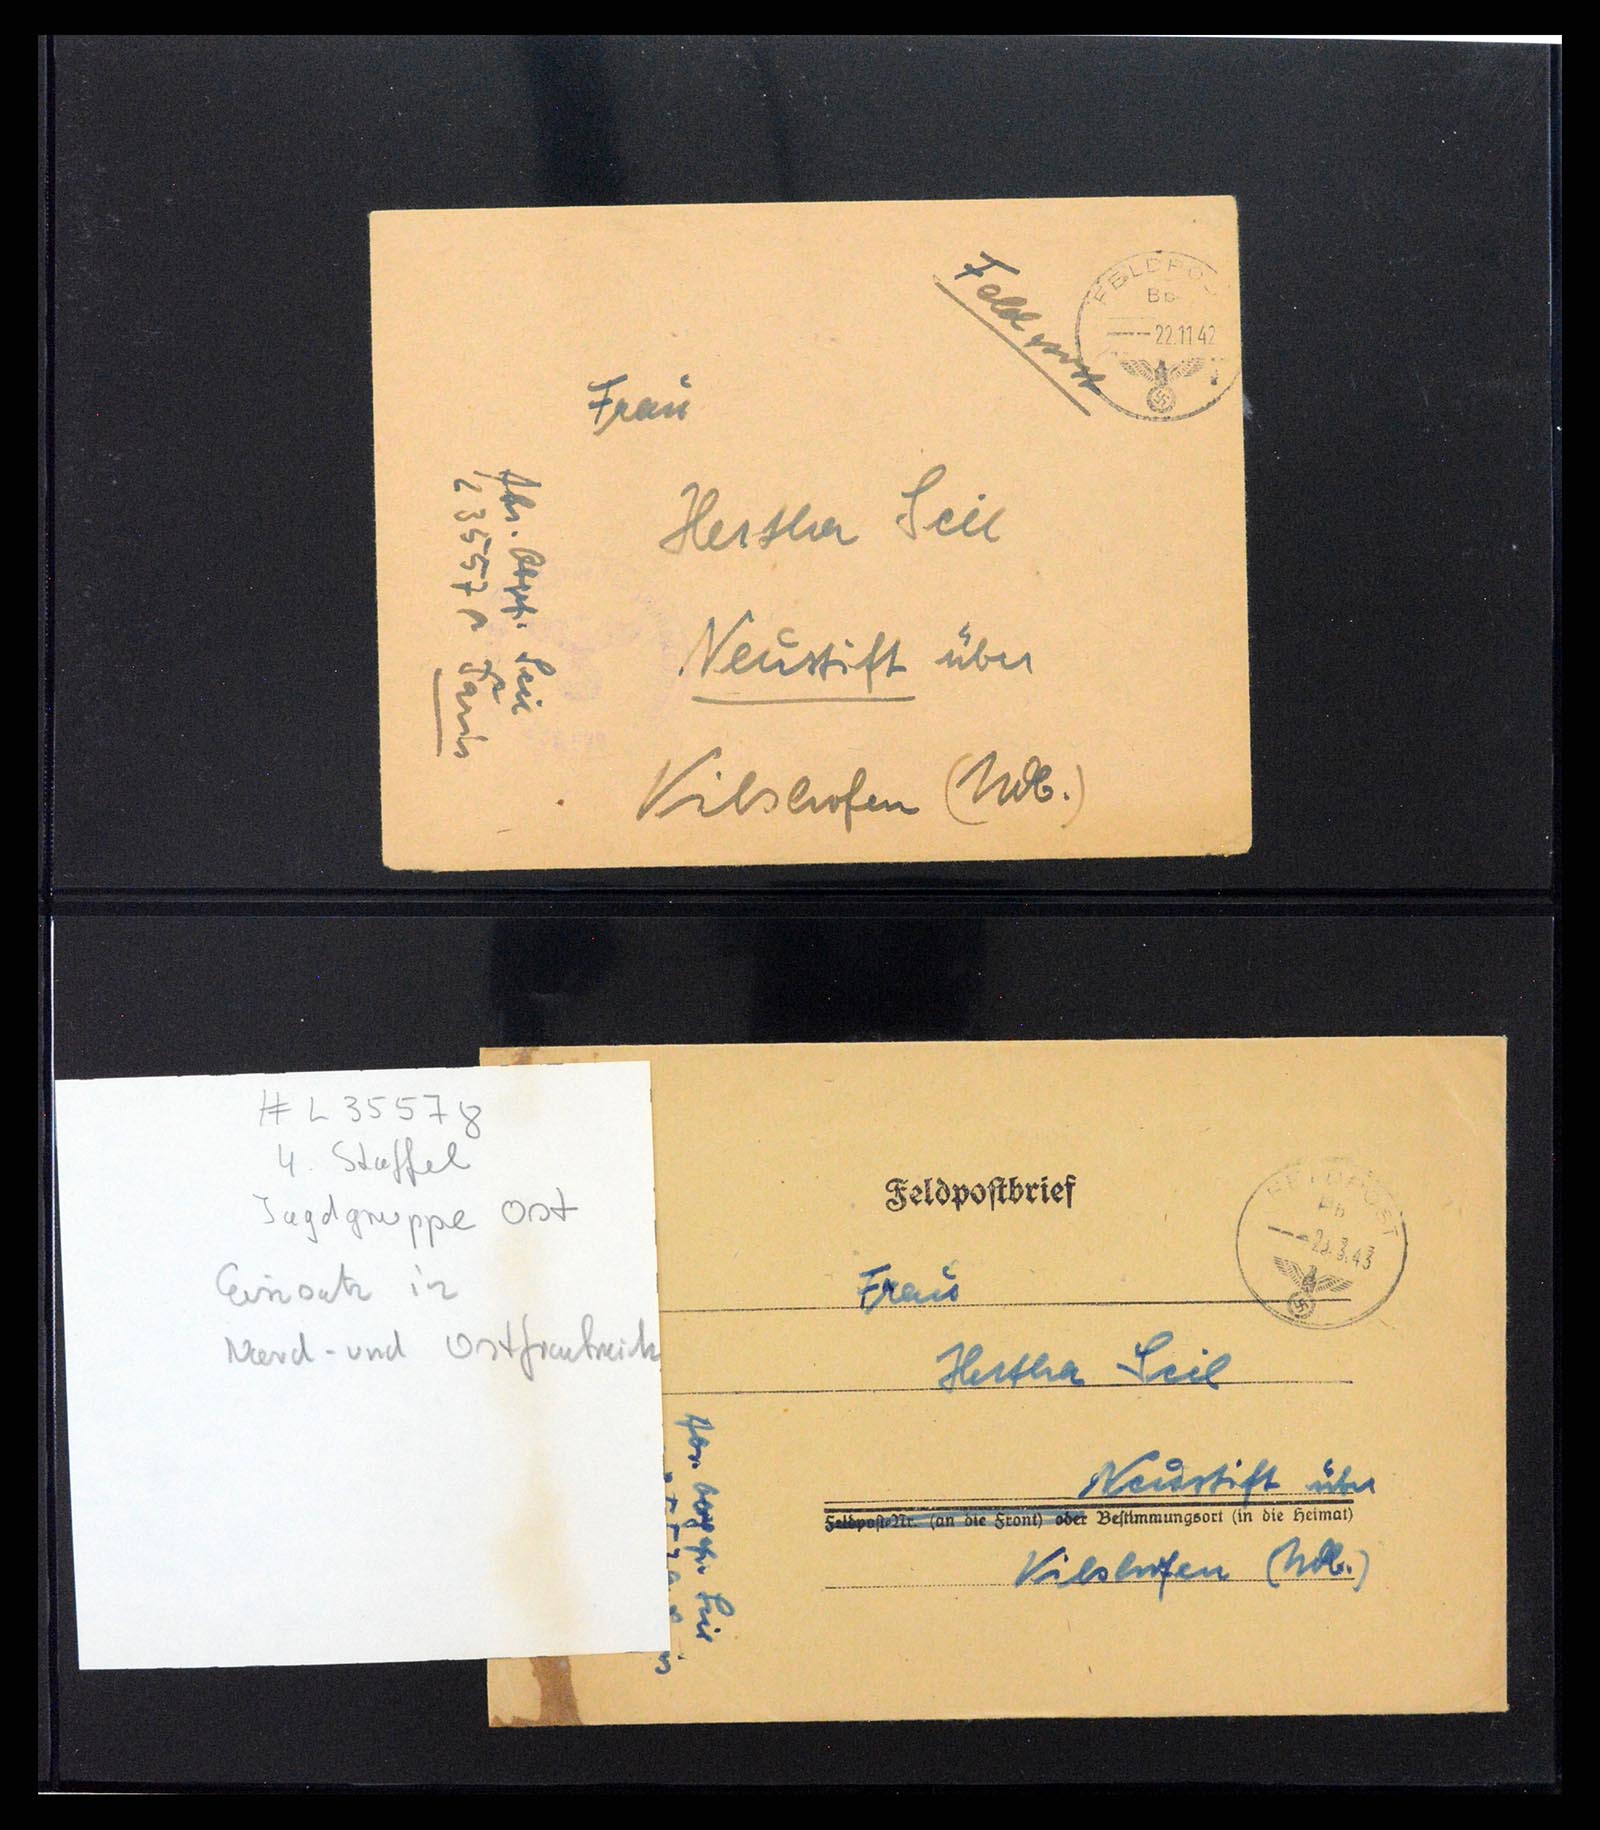 Feldpost
FELDPOS
Bb
22.11.42
Frau
Hertha Seil
Neustift über
Vilshofen (Ndb.)
Abs. Obgefr. Seil
L 35578
# L 35578
4. Staffel
Jagdgruppe Ost
Einsatz in
Nord- und Ostfrankreich
Feldpostbrief
FELDPOST
.3.43
Frau
Hertha Seil
Neustift über
Feldpost-Nr. (an die Front) oder Bestimmungsort (in die Heimat)
Vilshofen (Ndb.)
Abs. Seil